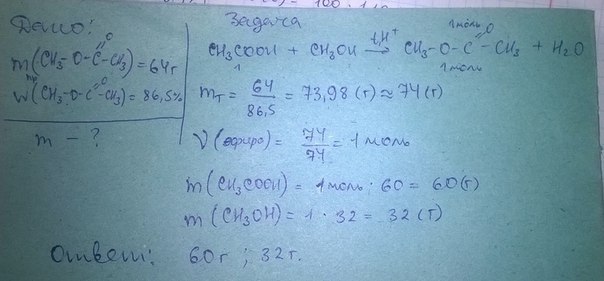 Дано:
m(CH₃-O-C(=O)-CH₃) = 64г
пр
W(CH₃-O-C(=O)-CH₃) = 86,5%
m - ?
Задача
1моль
CH₃COOH + CH₃OH →(t,H⁺) CH₃-O-C(=O)-CH₃ + H₂O
1 1моль
mт = 64/86,5 = 73,98 (г) ≈ 74 (г)
ν(эфира) = 74/74 = 1 моль
m(CH₃COOH) = 1моль · 60 = 60(г)
m(CH₃OH) = 1 · 32 = 32 (г)
Ответ: 60г ; 32г.